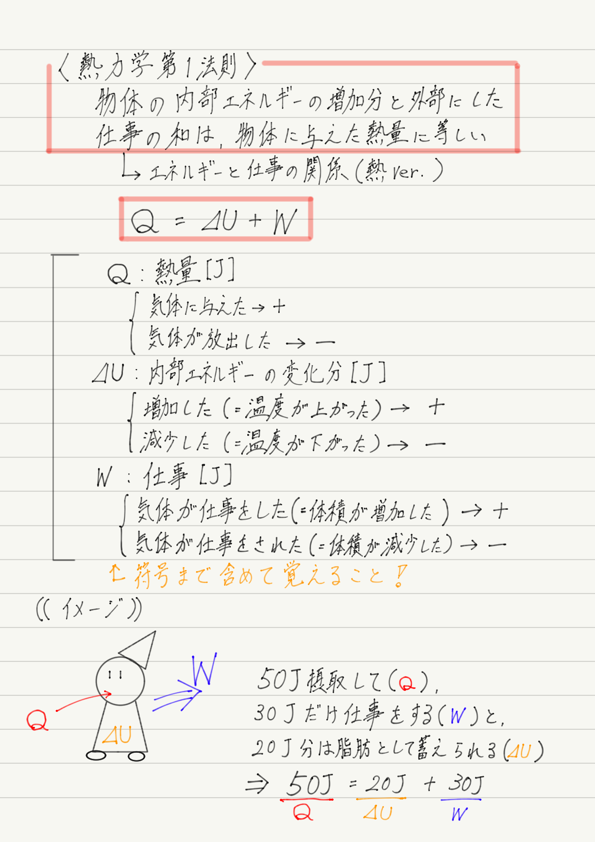 〈熱力学第1法則〉
物体の内部エネルギーの増加分と外部にした
仕事の和は,物体に与えた熱量に等しい
↳エネルギーと仕事の関係(熱ver.)
Q = ΔU + W
Q:熱量[J]
気体に与えた→+
気体が放出した→−
ΔU:内部エネルギーの変化分[J]
増加した(=温度が上がった)→ +
減少した(=温度が下がった)→ −
W:仕事[J]
気体が仕事をした(=体積が増加した)→+
気体が仕事をされた(=体積が減少した)→−
↑符号まで含めて覚えること!
((イメージ))
W
Q
ΔU
50J摂取して(Q),
30Jだけ仕事をする(W)と,
20J分は脂肪として蓄えられる(ΔU)
⇒ 50J = 20J + 30J
Q ΔU W